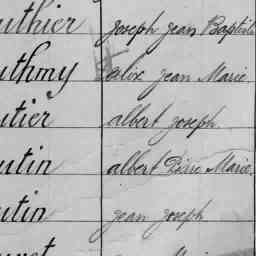 uthier Joseph Jean Baptist
uthmy alix Jean Marie.
utier albert Joseph
utin albert Pierre Marie.
utin Jean Joseph